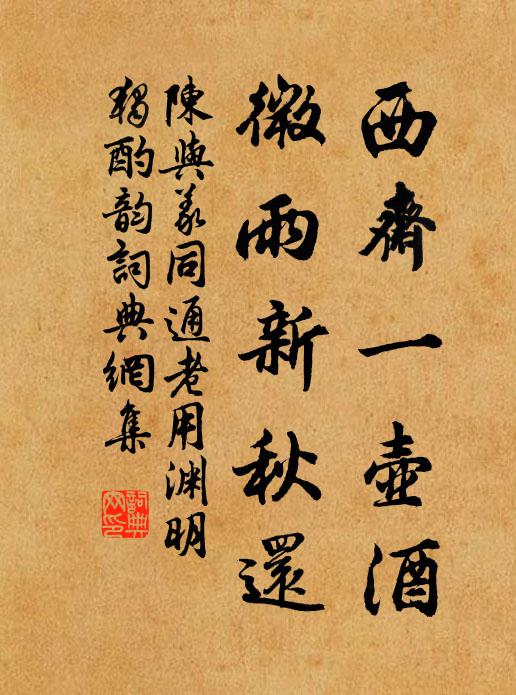 西齋一壺酒
微雨新秋還
陳與義同通老用淵明
獨酌韵詞典網集
詞典
网印